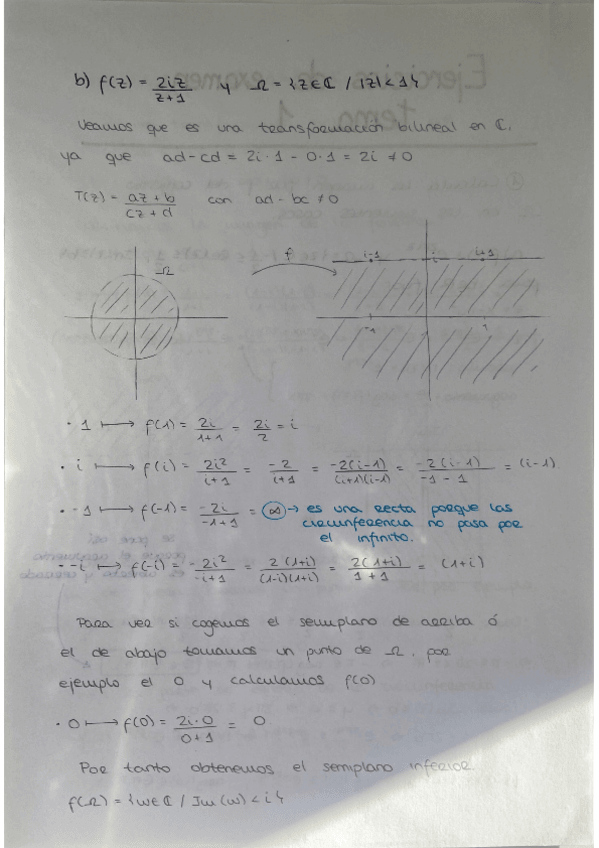 b) f(z) = 2iz / z+1 y Ω = {z∈ℂ / |z|<1}
Veamos que es una transformación bilineal en ℂ,
ya que ad-cd = 2i·1 - 0·1 = 2i ≠0
T(z) = az+b / cz+d con ad-bc ≠0
Ω f i-1 i i+1
-1
· 1 ⟼ f(1) = 2i / 1+1 = 2i / 2 = i
· i ⟼ f(i) = 2i² / i+1 = -2 / i+1 = -2(i-1) / (i+1)(i-1) = -2(i-1) / -1-1 = (i-1)
· -1 ⟼ f(-1) = -2i / -1+1 = ∞ → es una recta porque las
circunferencia no pasa por
el infinito.
· -i ⟼ f(-i) = -2i² / -i+1 = 2(1+i) / (1-i)(1+i) = 2(1+i) / 1+1 = (1+i)
Para ver si cogemos el semiplano de arriba ó
el de abajo tomamos un punto de Ω, por
ejemplo el 0 y calculamos f(0)
· 0 ⟼ f(0) = 2i·0 / 0+1 = 0
Por tanto obtenemos el semiplano inferior.
f(Ω) = {w∈ℂ / Im(w) < i}